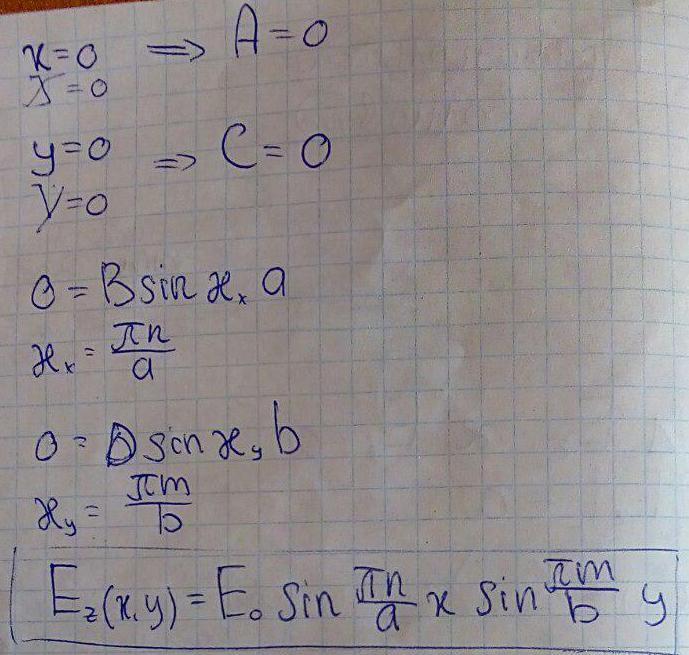 x=0 ⇒ A=0
X=0
y=0 ⇒ C=0
Y=0
0 = B sin ϰₓ a
ϰₓ = πn/a
0 = D sin ϰᵧ b
ϰᵧ = πm/b
E_z(x,y) = E₀ sin πn/a x sin πm/b y